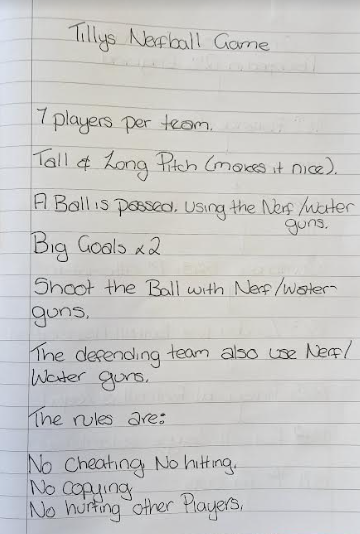 Tillys Nerfball Game
7 players per team.
Tall & Long Pitch (makes it nice).
A Ball is passed. Using the Nerf/water
guns.
Big Goals x2
Shoot the Ball with Nerf/water
guns.
The defending team also use Nerf/
Water guns.
The rules are:
No Cheating, No hitting.
No copying
No hurting other Players.